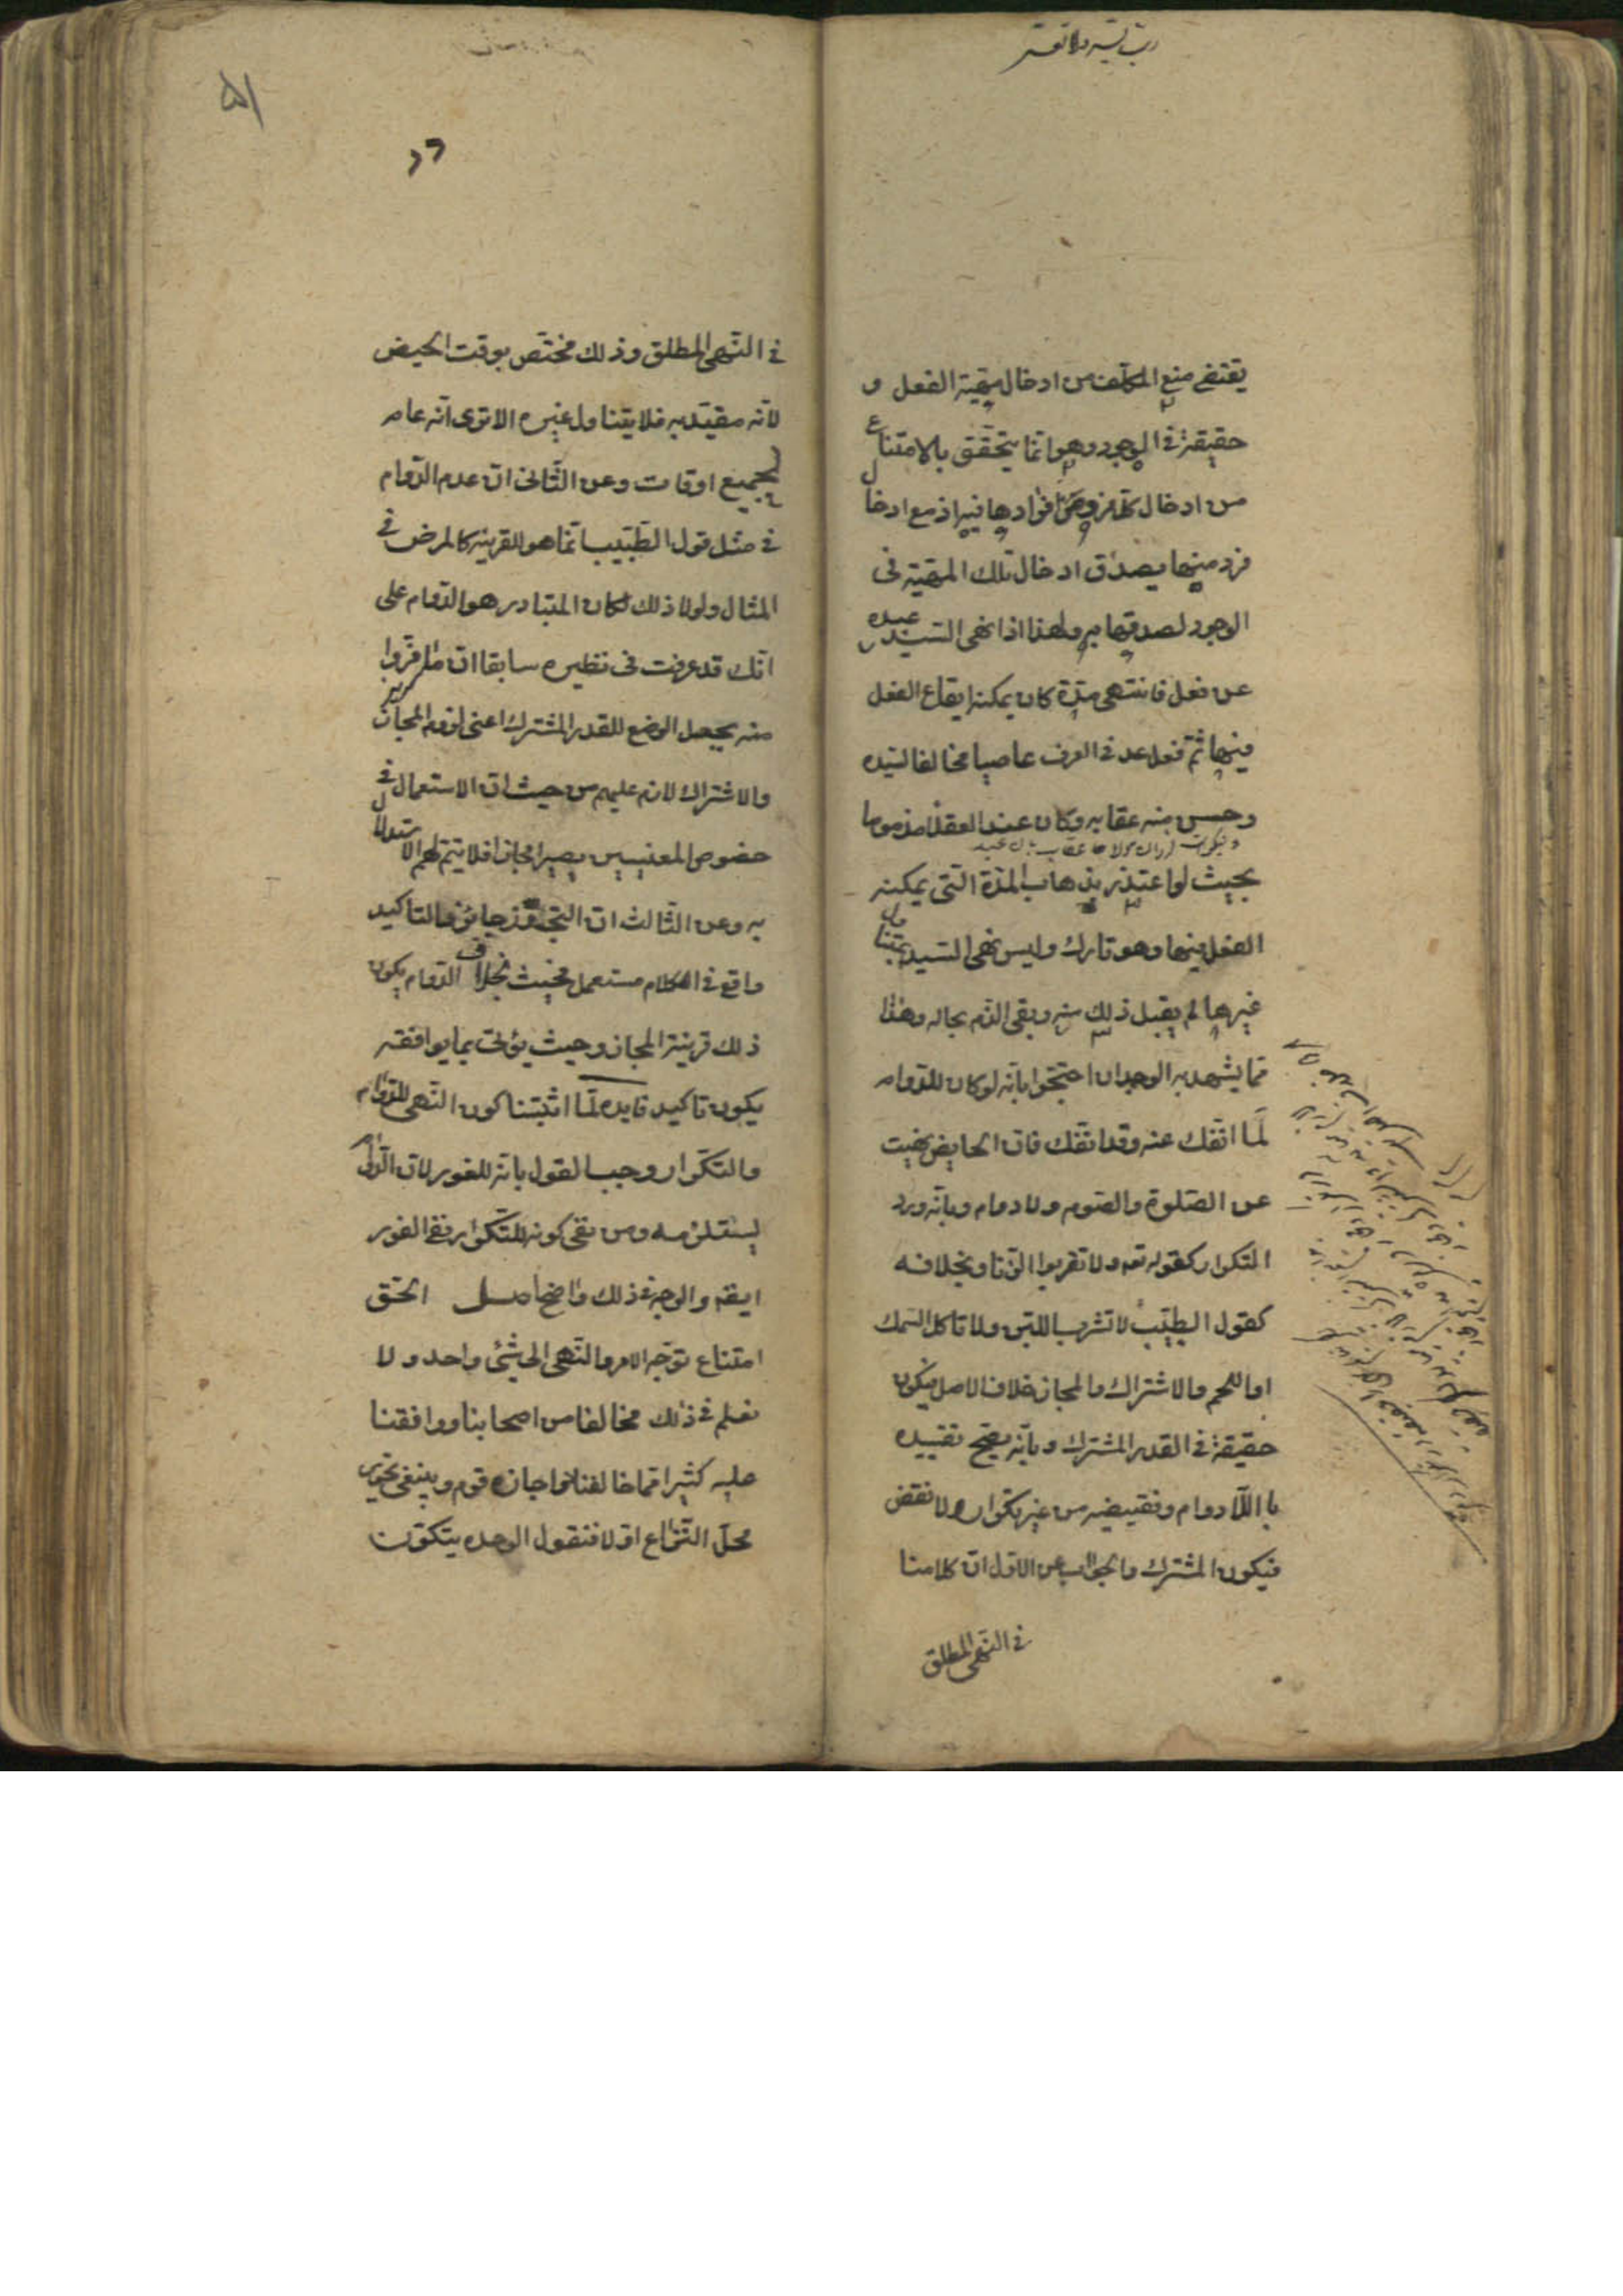 رب یسر ولا تعسر
یقتضی منع المکلف من ادخال مهیة الفعل و
حقیقة فی الوجود وهو انما یتحقق بالامتناع
من ادخال کل فرد من افرادها فیه اذ مع ادخال
فرد منها یصدق ادخال تلک المهیة فی
الوجود لصدقها به ولهذا اذا نهی السید عبده
عن فعل فانتهی مدة کان یمکنه ایقاع الفعل
فیها ثم فعل عد فی العرف عاصیا مخالفا لسیده
وحسن منه عقابه وکان عند العقلا مذموما
بحیث لو اعتذر بذهاب المدة التی یمکنه
الفعل فیها وهو تارک ولیس نهی السید یتناول
غیرها لم یقبل ذلک منه وبقی الذم بحاله وهذا
مما یشهد به الوجدان احتجوا بانه لو کان للدوام
لما انفک عنه وقد انفک فان الحایض نهیت
عن الصلوة والصوم ولا دوام وبانه ورد
التکرار کقوله تعه ولا تقربوا الزنا وبخلافه
کقول الطبیب لا تشرب اللبن ولا تاکل السمک
او اللحم والاشتراک والمجاز خلاف الاصل فیکون
حقیقة فی القدر المشترک وبانه یصح تقییده
با اللادوام ونقیضه من غیر تکرار ولا نقض
فیکون المشترک والجواب عن الاول ان کلامنا
فی النهی المطلق
۵۱
فی النهی المطلق وذلک مختص بوقت الحیض
لانه مقید به فلا یتناول غیره الا تری انه عام
لجمیع اوقات وعن الثانی ان عدم الدوام
فی مثل قول الطبیب انما هو للقرینة کالمرض فی
المثال ولولا ذلک لکان المتبادر هو الدوام علی
انک قد عرفت فی نظیره سابقا ان ما فروا
منه بجعل الوضع للقدر المشترک اعنی لزوم المجاز
والاشتراک لازم علیهم من حیث ان الاستعمال فی
خصوص المعنیین یصیر مجازا فلا یتم لهم الاستدلال
به وعن الثالث ان التجوز جائز والتاکید
واقع فی الکلام مستعمل فحیث بخلاف الدوام یکون
ذلک قرینة المجاز وحیث یؤتی بما یوافقه
یکون تاکید فایده لما اثبتنا کون النهی للدوام
والتکرار وجب القول بانه للفور لان الدوام
یستلزمه ومن نفی کونه للتکرار نفی الفور
ایضه والوجه فی ذلک واضح اصل الحق
امتناع توجه الامر والنهی الی شئی واحد ولا
نعلم فی ذلک مخالفا من اصحابنا ووافقنا
علیه کثیرا مما خالفنا واجازه قوم وینبغی تحریر
محل النزاع اولا فنقول الوحدة یتکون